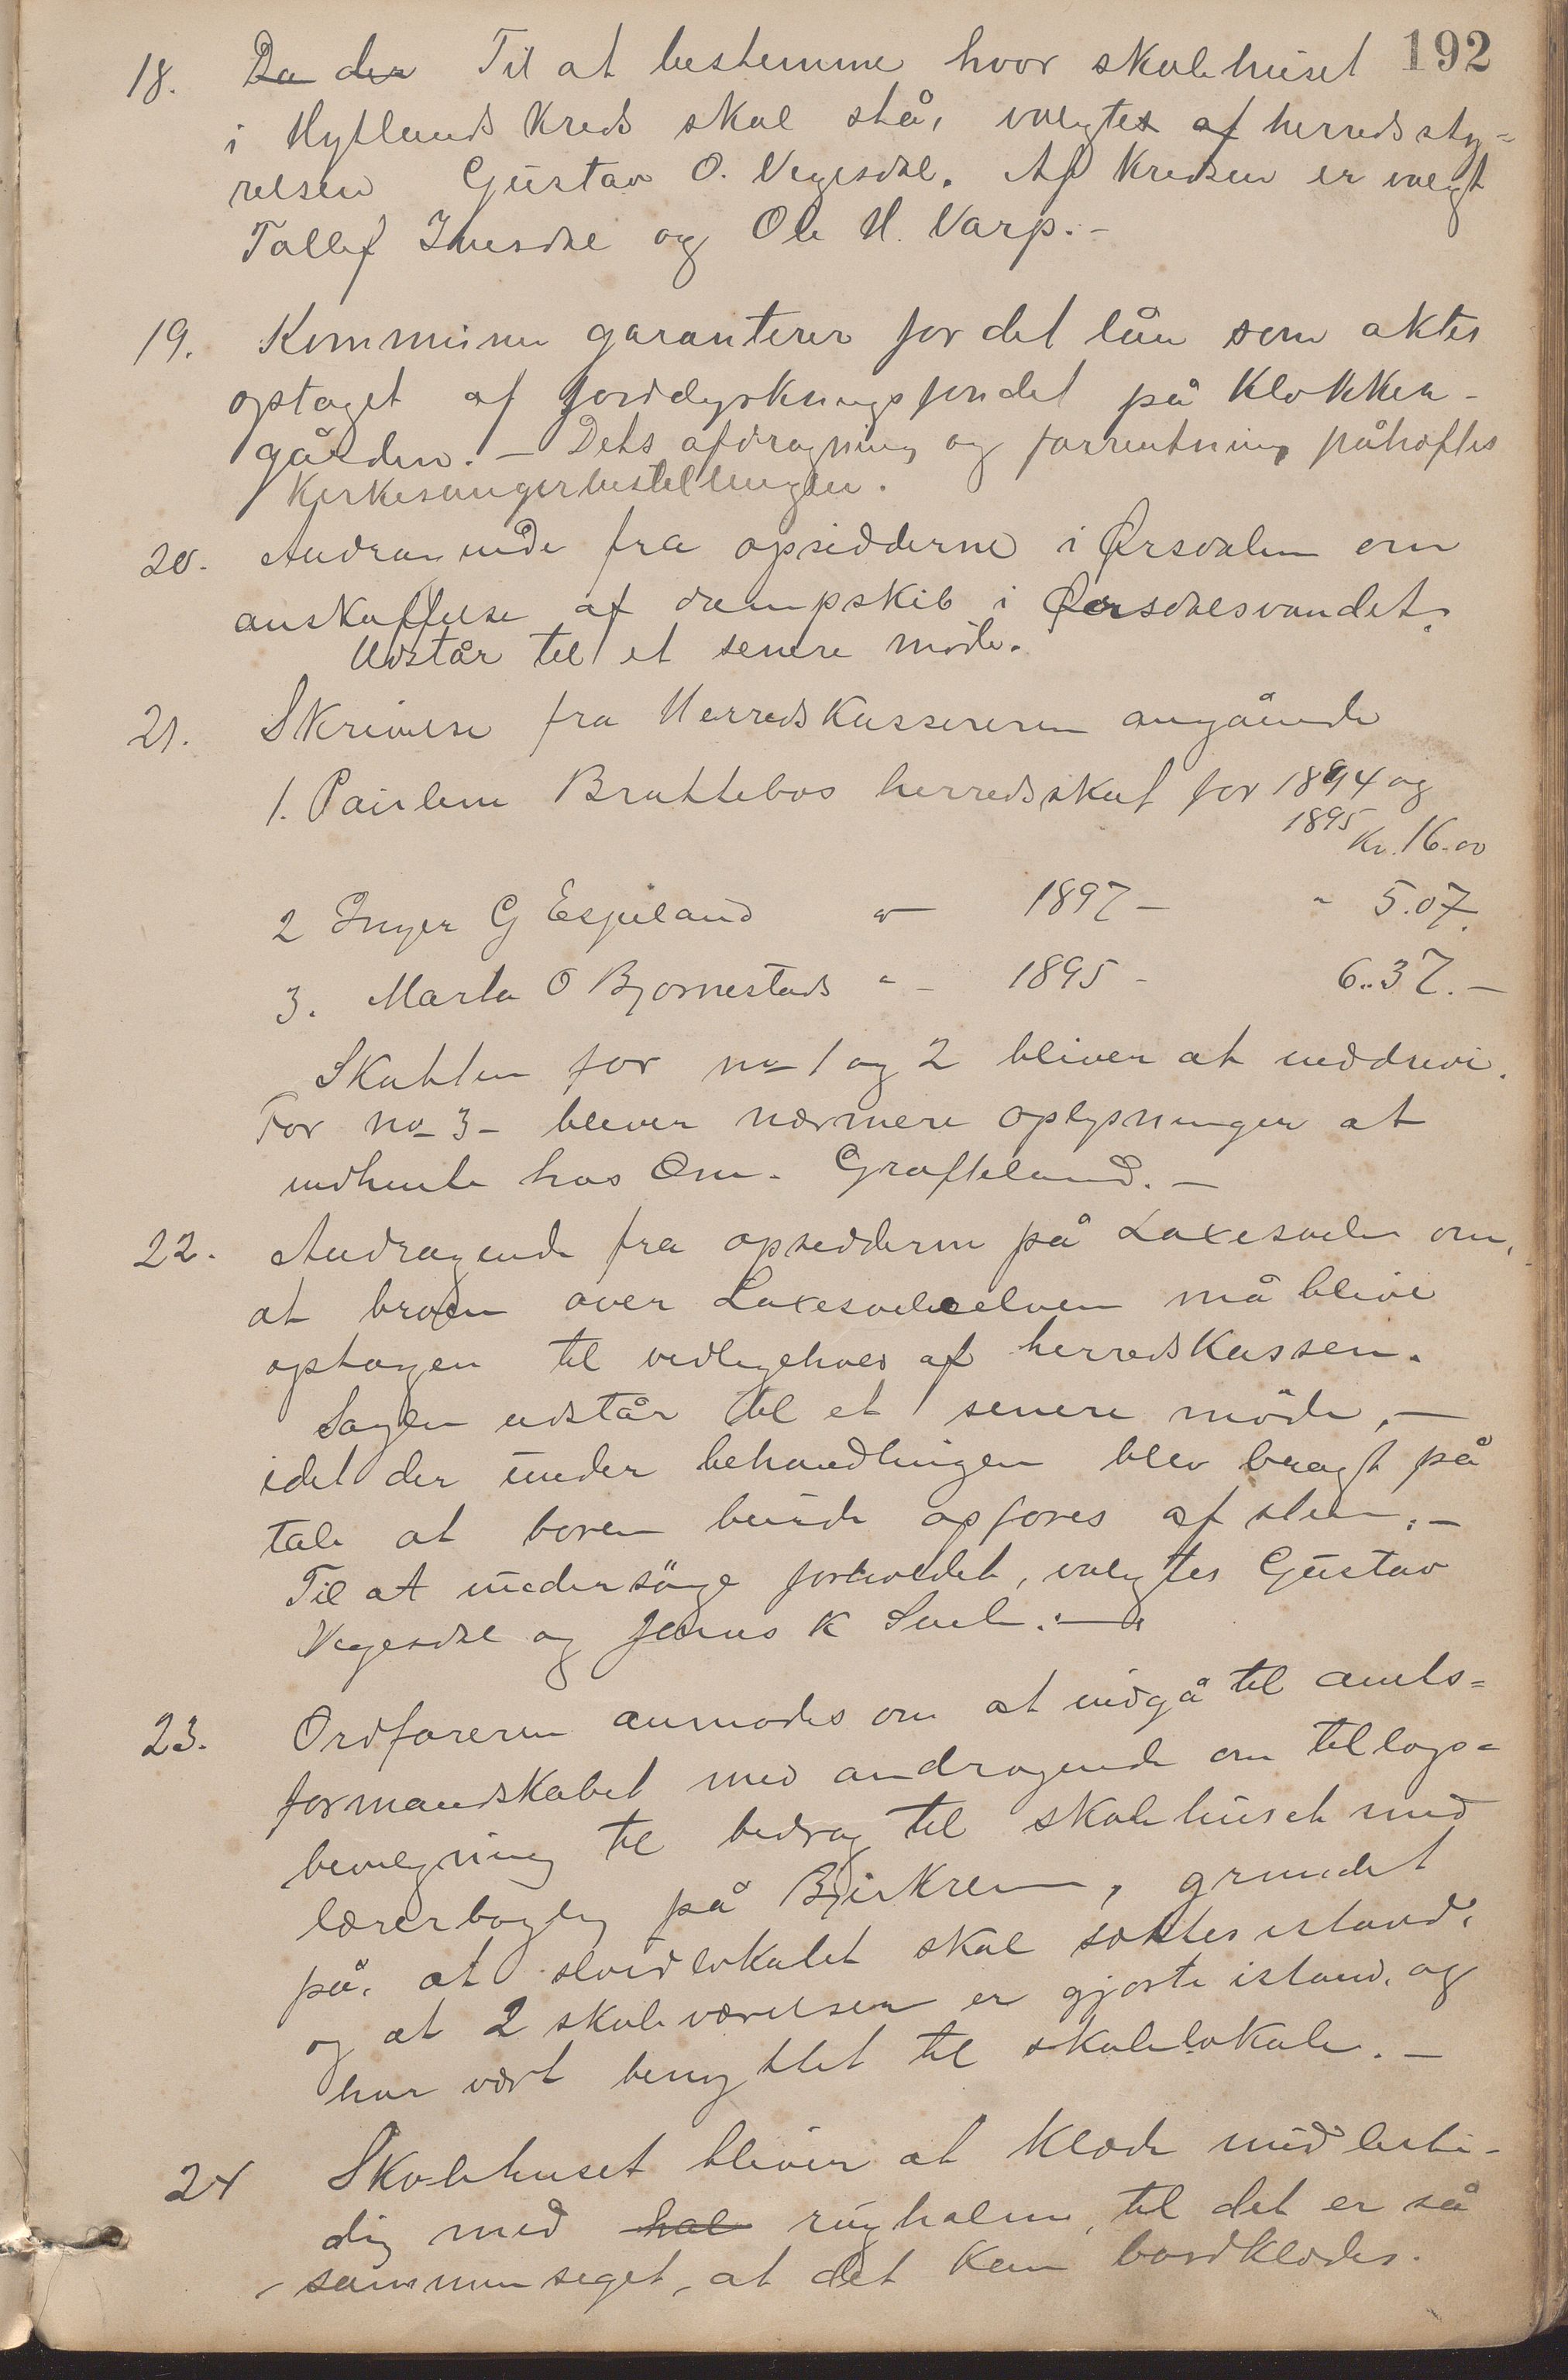 192
18. Da der Til at bestemme hvor skolehuset
i Hytlands kreds skal stå, valgtes af herredssty-
relsen Gustav O. Vegesdal. Af kredsen er valgt
Tollef Ivesdal og Ole H. Varp.-
19. Kommunen garanterer for det lån som aktes
optaget af jorddyrkningsfondet på Klokker-
gården. - Dets afdragning og forrentning påhæftes
Kirkesangerbestillingen.
20. Andragende fra opsidderne i Ørsdalen om
anskaffelse af dampskib i Ørsdalsvandet.
Udstår til et senere møde.
21. Skrivelse fra Herredskassereren angående
1. Paulene Brattebøs herredsskat for 1894 og
1895 Kr. 16.00
2 Inger G Espeland " - 1897 - " 5.07.
3. Marta O Bjørnestads " - 1895 - 6.37.-
Skatten for no 1 og 2 bliver at inddrive.
For no 3 - bliver nærmere oplysninger at
indhente hos Om. Grøfteland.-
22. Andragende fra opsidderne på Laxesvele om,
at broen over Laxesveleelven må blive
optagen til vedligehold af herredskassen.
Sagen udstår til et senere møde,-
idet der under behandlingen blev bragt på
tale at broen burde opføres af sten.-
Til at undersøge forholdet, valgtes Gustav
Vegesdal og Jonas K Svele.-
23. Ordføreren anmodes om at indgå til amts-
formandskabet med andragende om tillægs-
bevilgning til bidrag til skolehuset med
lærerbolig på Bjerkrem, grundet
på, at sløidlokalet skal sættes istand,
og at 2 skoleværelser er gjorte istand, og
har vært benyttet til skolelokale.-
24 Skolehuset bliver at klæde midlerti-
dig med hal rughalm, til det er så
sammenseget, at det kan bordklædes.